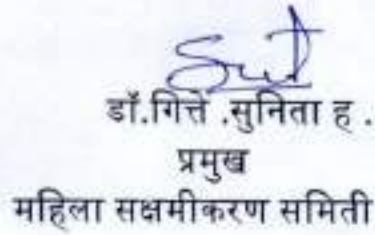 डॉ.गित्ते .सुनिता ह .
प्रमुख
महिला सक्षमीकरण समिती